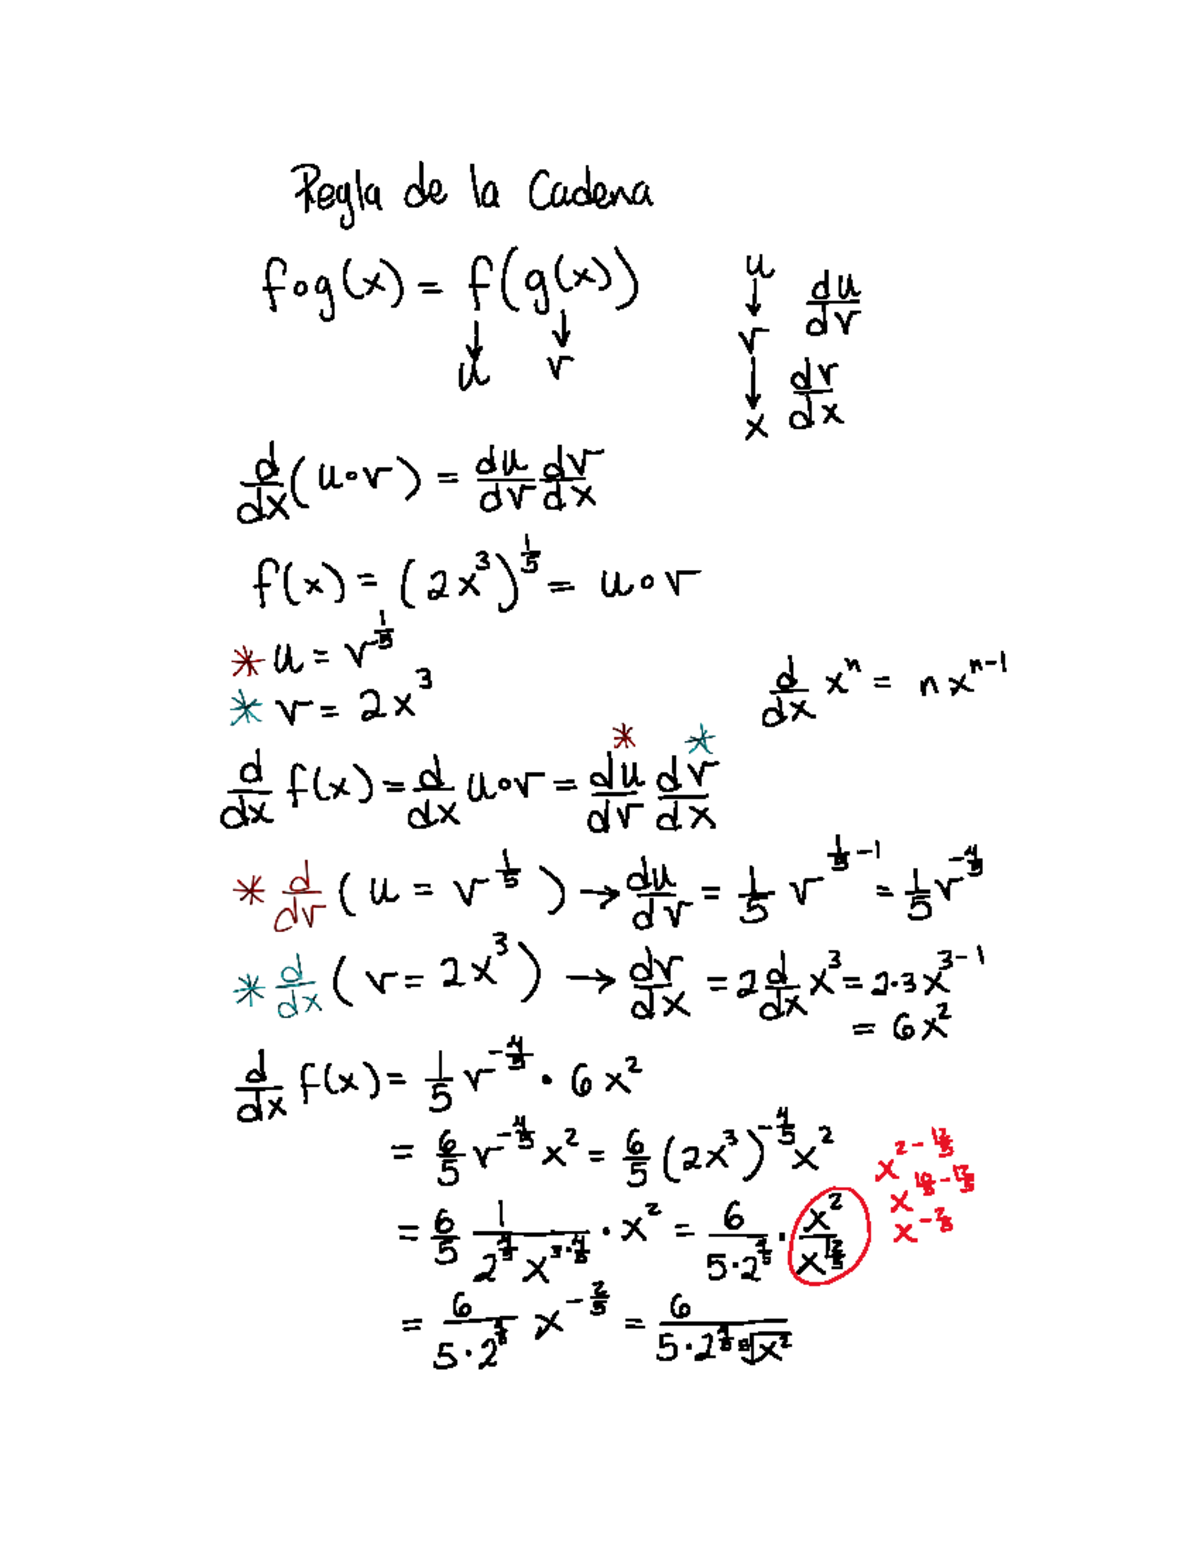 Regla de la Cadena
f∘g(x) = f(g(x))
↓ ↓
u v
u
↓ du/dv
v
↓ dv/dx
x
d/dx (u∘v) = du/dv dv/dx
f(x) = (2x^3)^(1/5) = u∘v
* u = v^(1/5)
* v = 2x^3
d/dx x^n = nx^(n-1)
* *
d/dx f(x) = d/dx u∘v = du/dv dv/dx
* d/dv (u = v^(1/5)) → du/dv = 1/5 v^(1/5 - 1) = 1/5 v^(-4/5)
* d/dx (v = 2x^3) → dv/dx = 2 d/dx x^3 = 2·3x^(3-1)
= 6x^2
d/dx f(x) = 1/5 v^(-4/5) · 6x^2
= 6/5 v^(-4/5) x^2 = 6/5 (2x^3)^(-4/5) x^2
= 6/5 1/(2^(4/5) x^(3·4/5)) · x^2 = 6/(5·2^(4/5)) · x^2/x^(12/5)
x^(2 - 12/5)
x^(10/5 - 12/5)
x^(-2/5)
= 6/(5·2^(4/5)) x^(-2/5) = 6/(5·2^(4/5) ⁵√x^2)